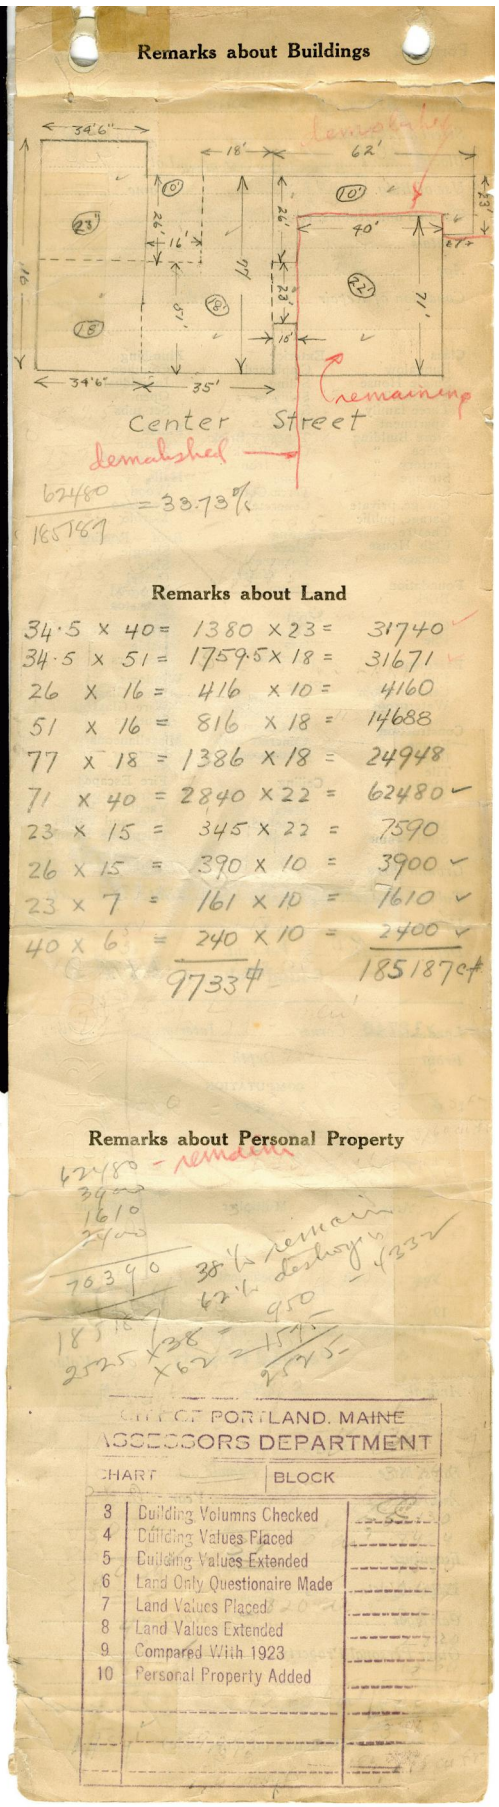 Remarks about Buildings
demolished
34'6"
18'
62'
10'
10'
23'
26'
16'
26'
40'
23'
77'
91'
28'
22'
71'
18'
51'
18'
15'
34'6"
35'
remaining
Center Street
demolished
62480
= 33.73%
185187
Remarks about Land
34.5 x 40 = 1380 x 23 = 31740
34.5 x 51 = 1759.5 x 18 = 31671
26 x 16 = 416 x 10 = 4160
51 x 16 = 816 x 18 = 14688
77 x 18 = 1386 x 18 = 24948
71 x 40 = 2840 x 22 = 62480 ✓
23 x 15 = 345 x 22 = 7590
26 x 15 = 390 x 10 = 3900 ✓
23 x 7 = 161 x 10 = 1610 ✓
40 x 6 = 240 x 10 = 2400 ✓
9733 185187 cf
Remarks about Personal Property
62480 - remain
3900
1610
2400
70390
38% remain
62% destroyed
185187
2525 x 38 = 950
x 62 =
2525
CITY OF PORTLAND, MAINE
ASSESSORS DEPARTMENT
CHART BLOCK
3 Building Volumns Checked
4 Building Values Placed
5 Building Values Extended
6 Land Only Questionaire Made
7 Land Values Placed
8 Land Values Extended
9 Compared With 1923
10 Personal Property Added